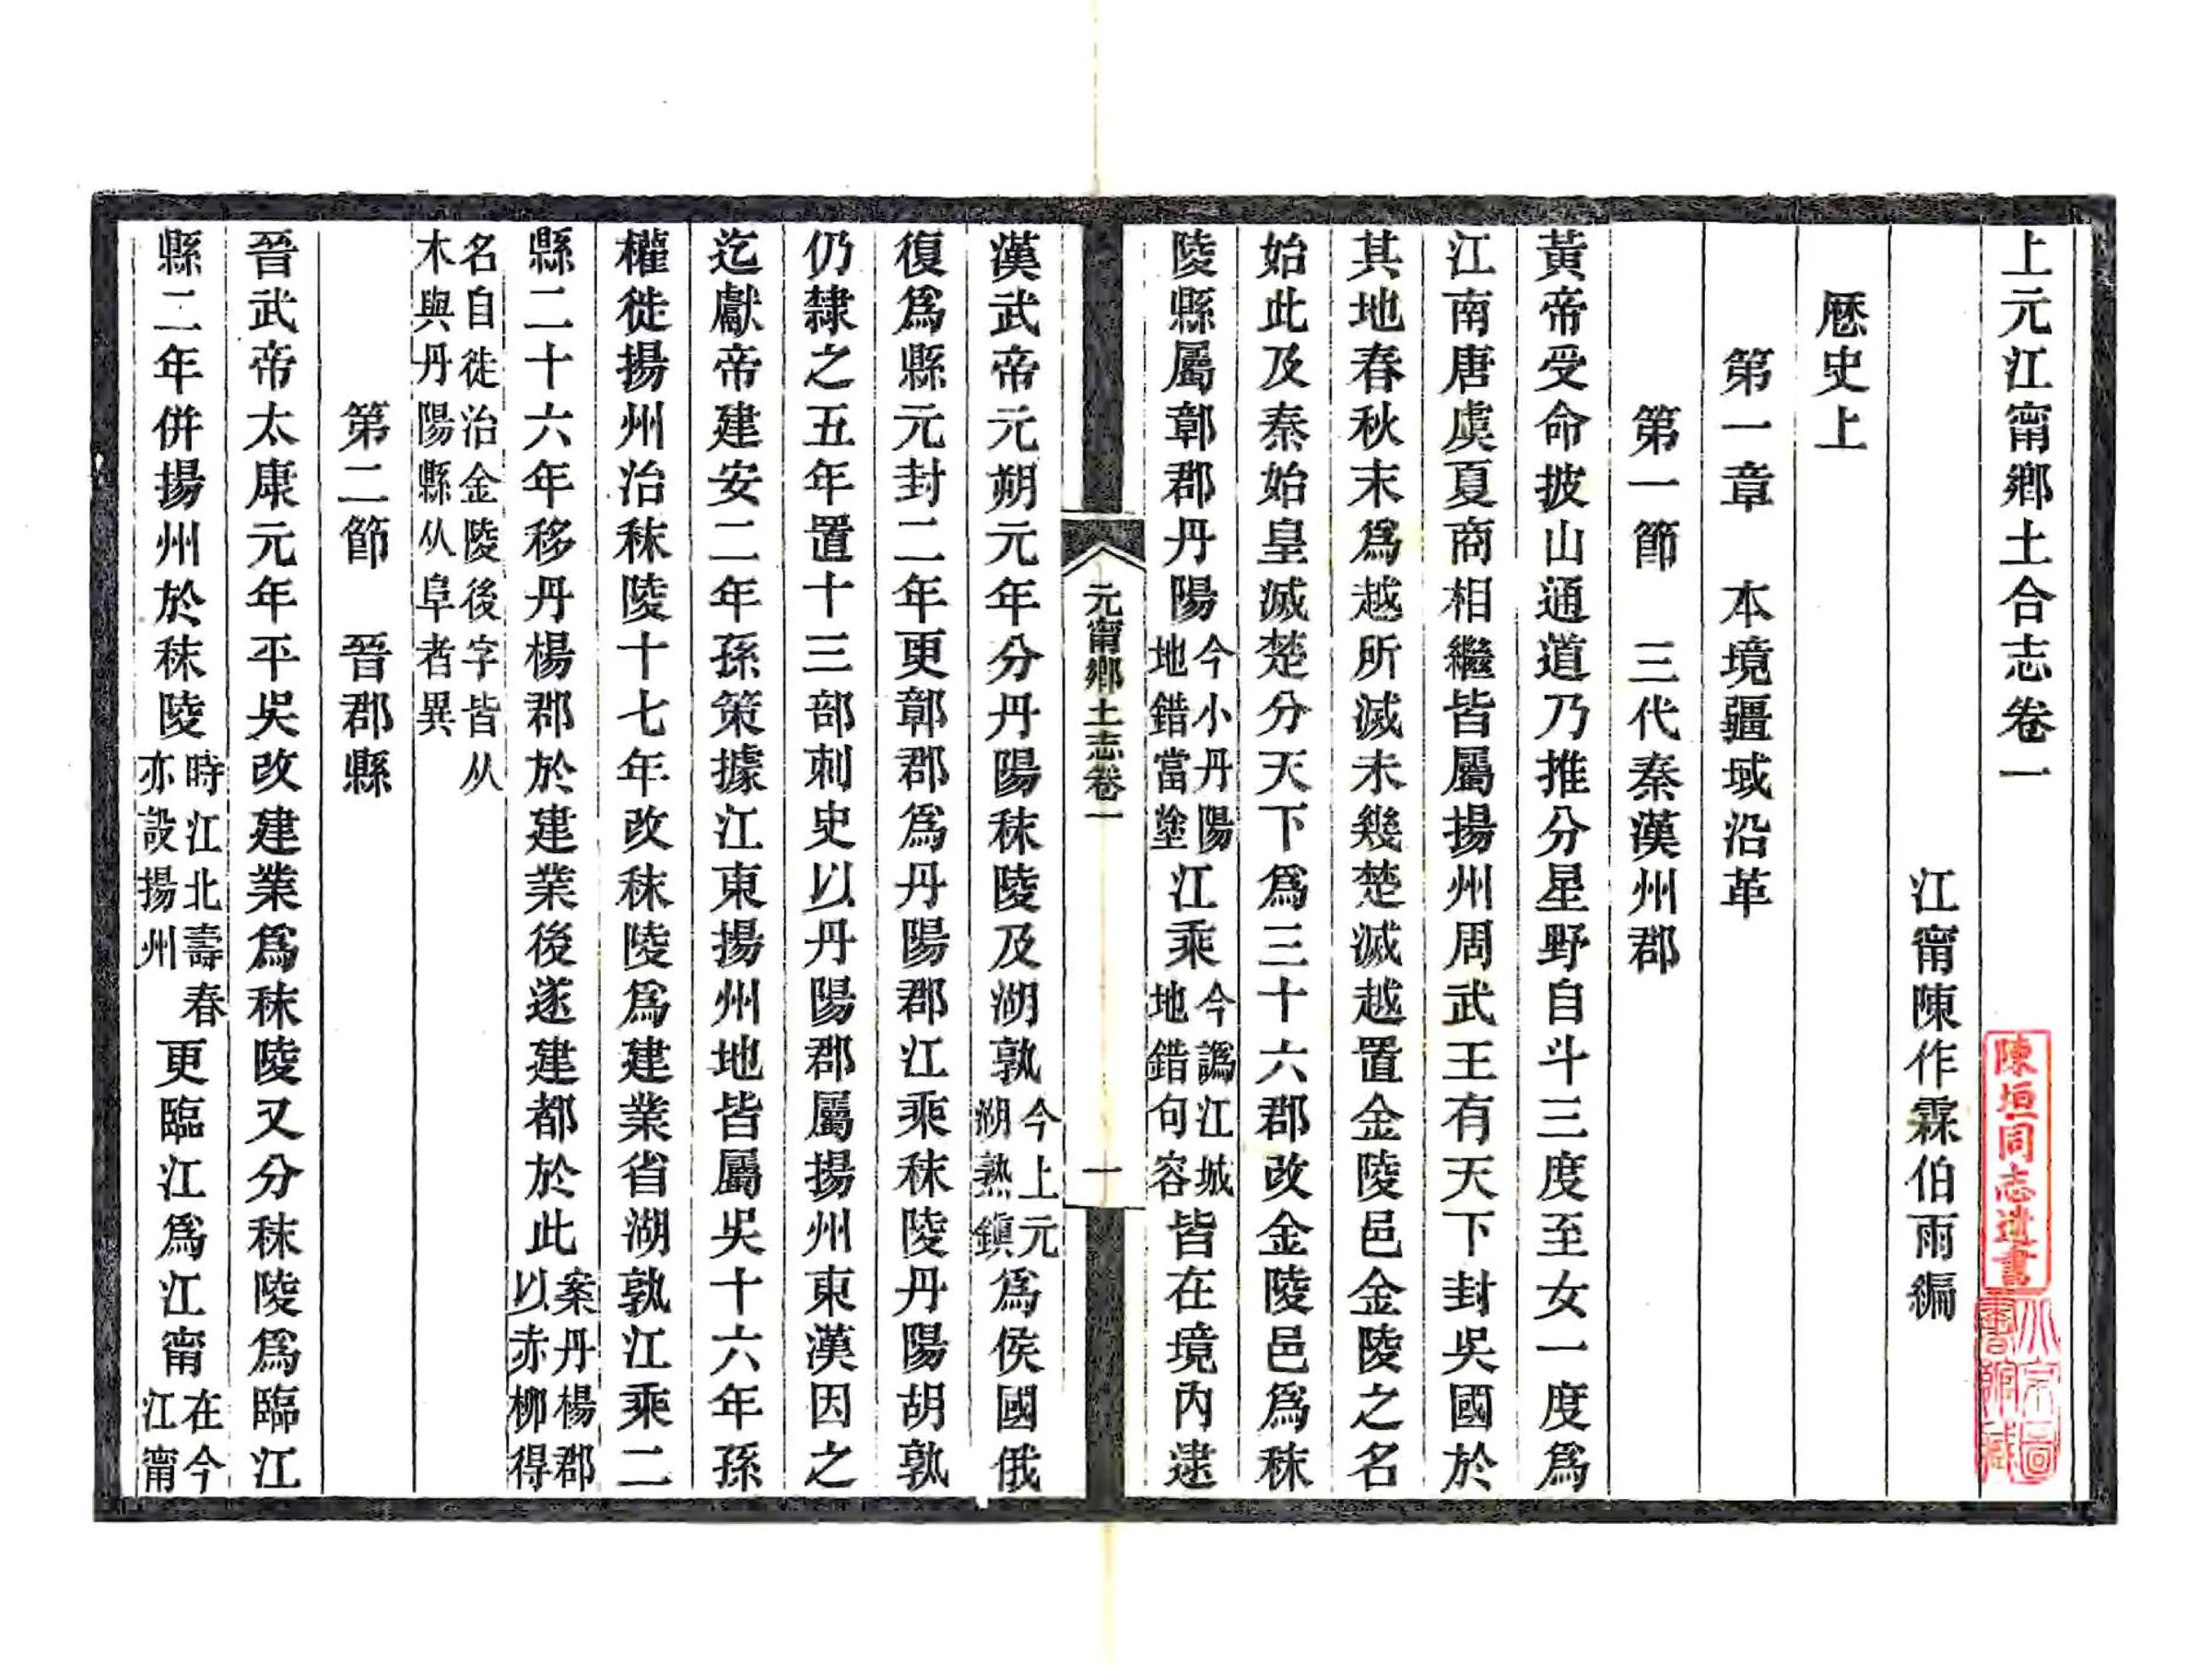 上元江甯鄉土合志卷一
江甯陳作霖伯雨編
厯史上
第一章　本境疆域沿革
第一節　三代秦漢州郡
黃帝受命披山通道乃推分星野自斗三度至女一度爲
江南唐虞夏商相繼皆屬揚州周武王有天下封吳國於
其地春秋末爲越所滅未幾楚滅越置金陵邑金陵之名
始此及秦始皇滅楚分天下爲三十六郡改金陵邑爲秣
陵縣屬鄣郡丹陽今小丹陽地錯當塗江乘今譌江城地錯句容皆在境內逮
元甯鄉土志卷一
一
漢武帝元朔元年分丹陽秣陵及湖孰今上元湖熟鎭爲侯國俄
復爲縣元封二年更鄣郡爲丹陽郡江乘秣陵丹陽胡孰
仍隸之五年置十三部刺史以丹陽郡屬揚州東漢因之
迄獻帝建安二年孫策據江東揚州地皆屬吳十六年孫
權徙揚州治秣陵十七年改秣陵爲建業省湖孰江乘二
縣二十六年移丹楊郡於建業後遂建都於此案丹楊郡以赤柳得
名自徙治金陵後字皆从木與丹陽縣从阜者異
第二節　晉郡縣
晉武帝太康元年平吳改建業爲秣陵又分秣陵爲臨江
縣二年併揚州於秣陵時江北壽春亦設揚州更臨江爲江甯在今江甯
陳垣同志遺書
北京圖書館藏